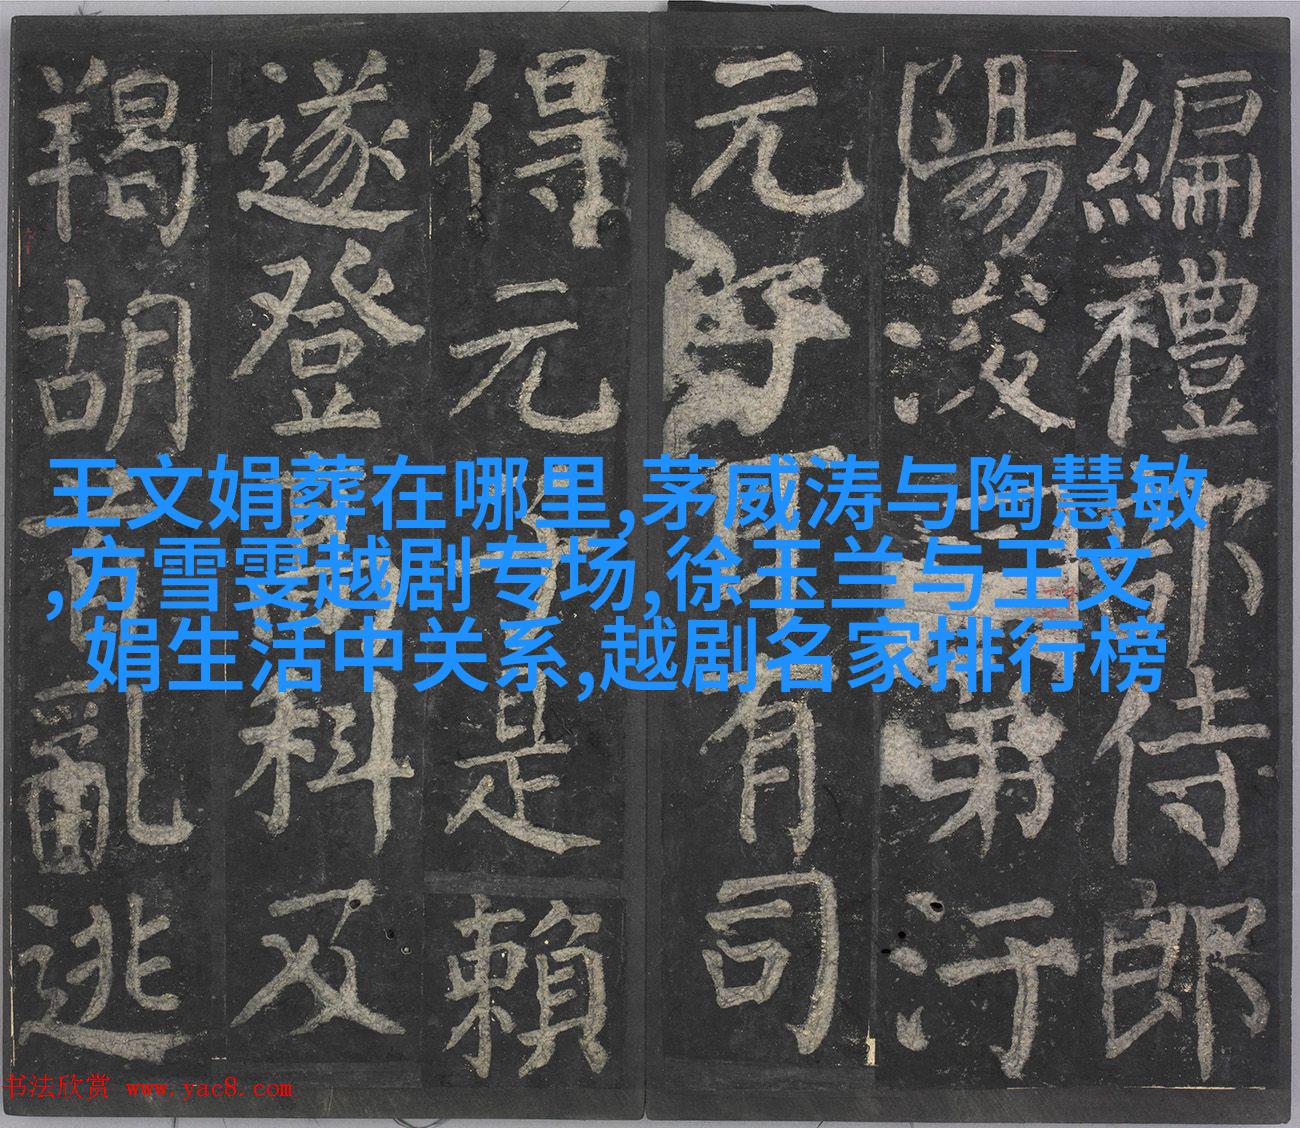 編禮部侍郎
陽浚弟汙
元有司
得元是賴
遂登科及
羯胡亂逃
王文娟葬在哪里,茅威涛与陶慧敏
,方雪雯越剧专场,徐玉兰与王文
娟生活中关系,越剧名家排行榜
书法欣赏 www.yac8.com